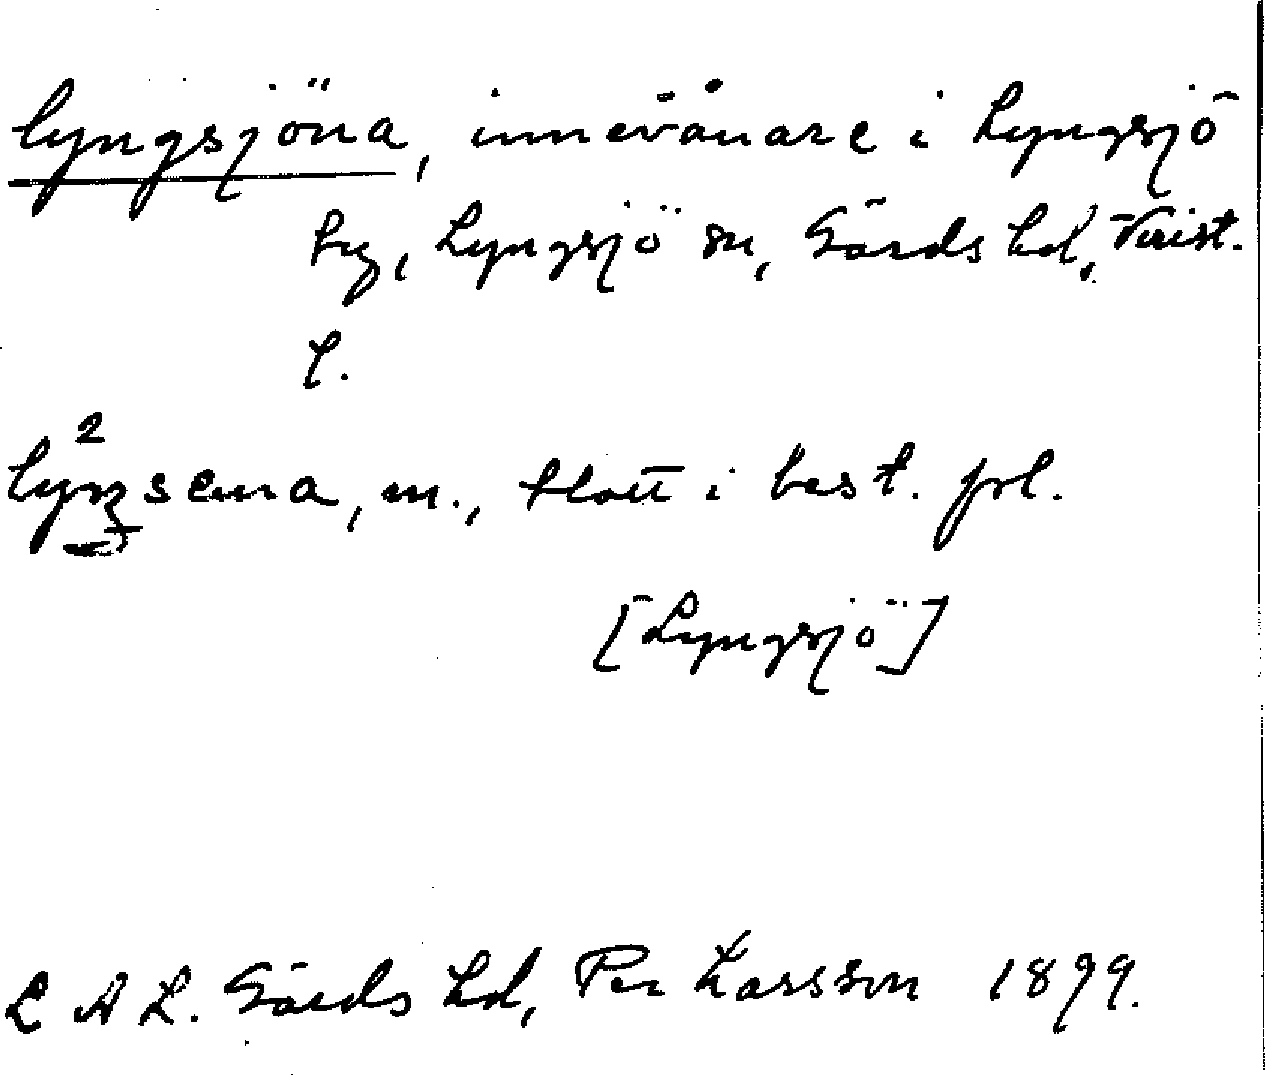 lyngsjöna, innevånare i Lyngsjö
by, Lyngsjö sn, Gärds hd, Krist.
l.
blott i best. pl.
[Lyngsjö]
L A L. Gärds hd, Per Larsson 1899.